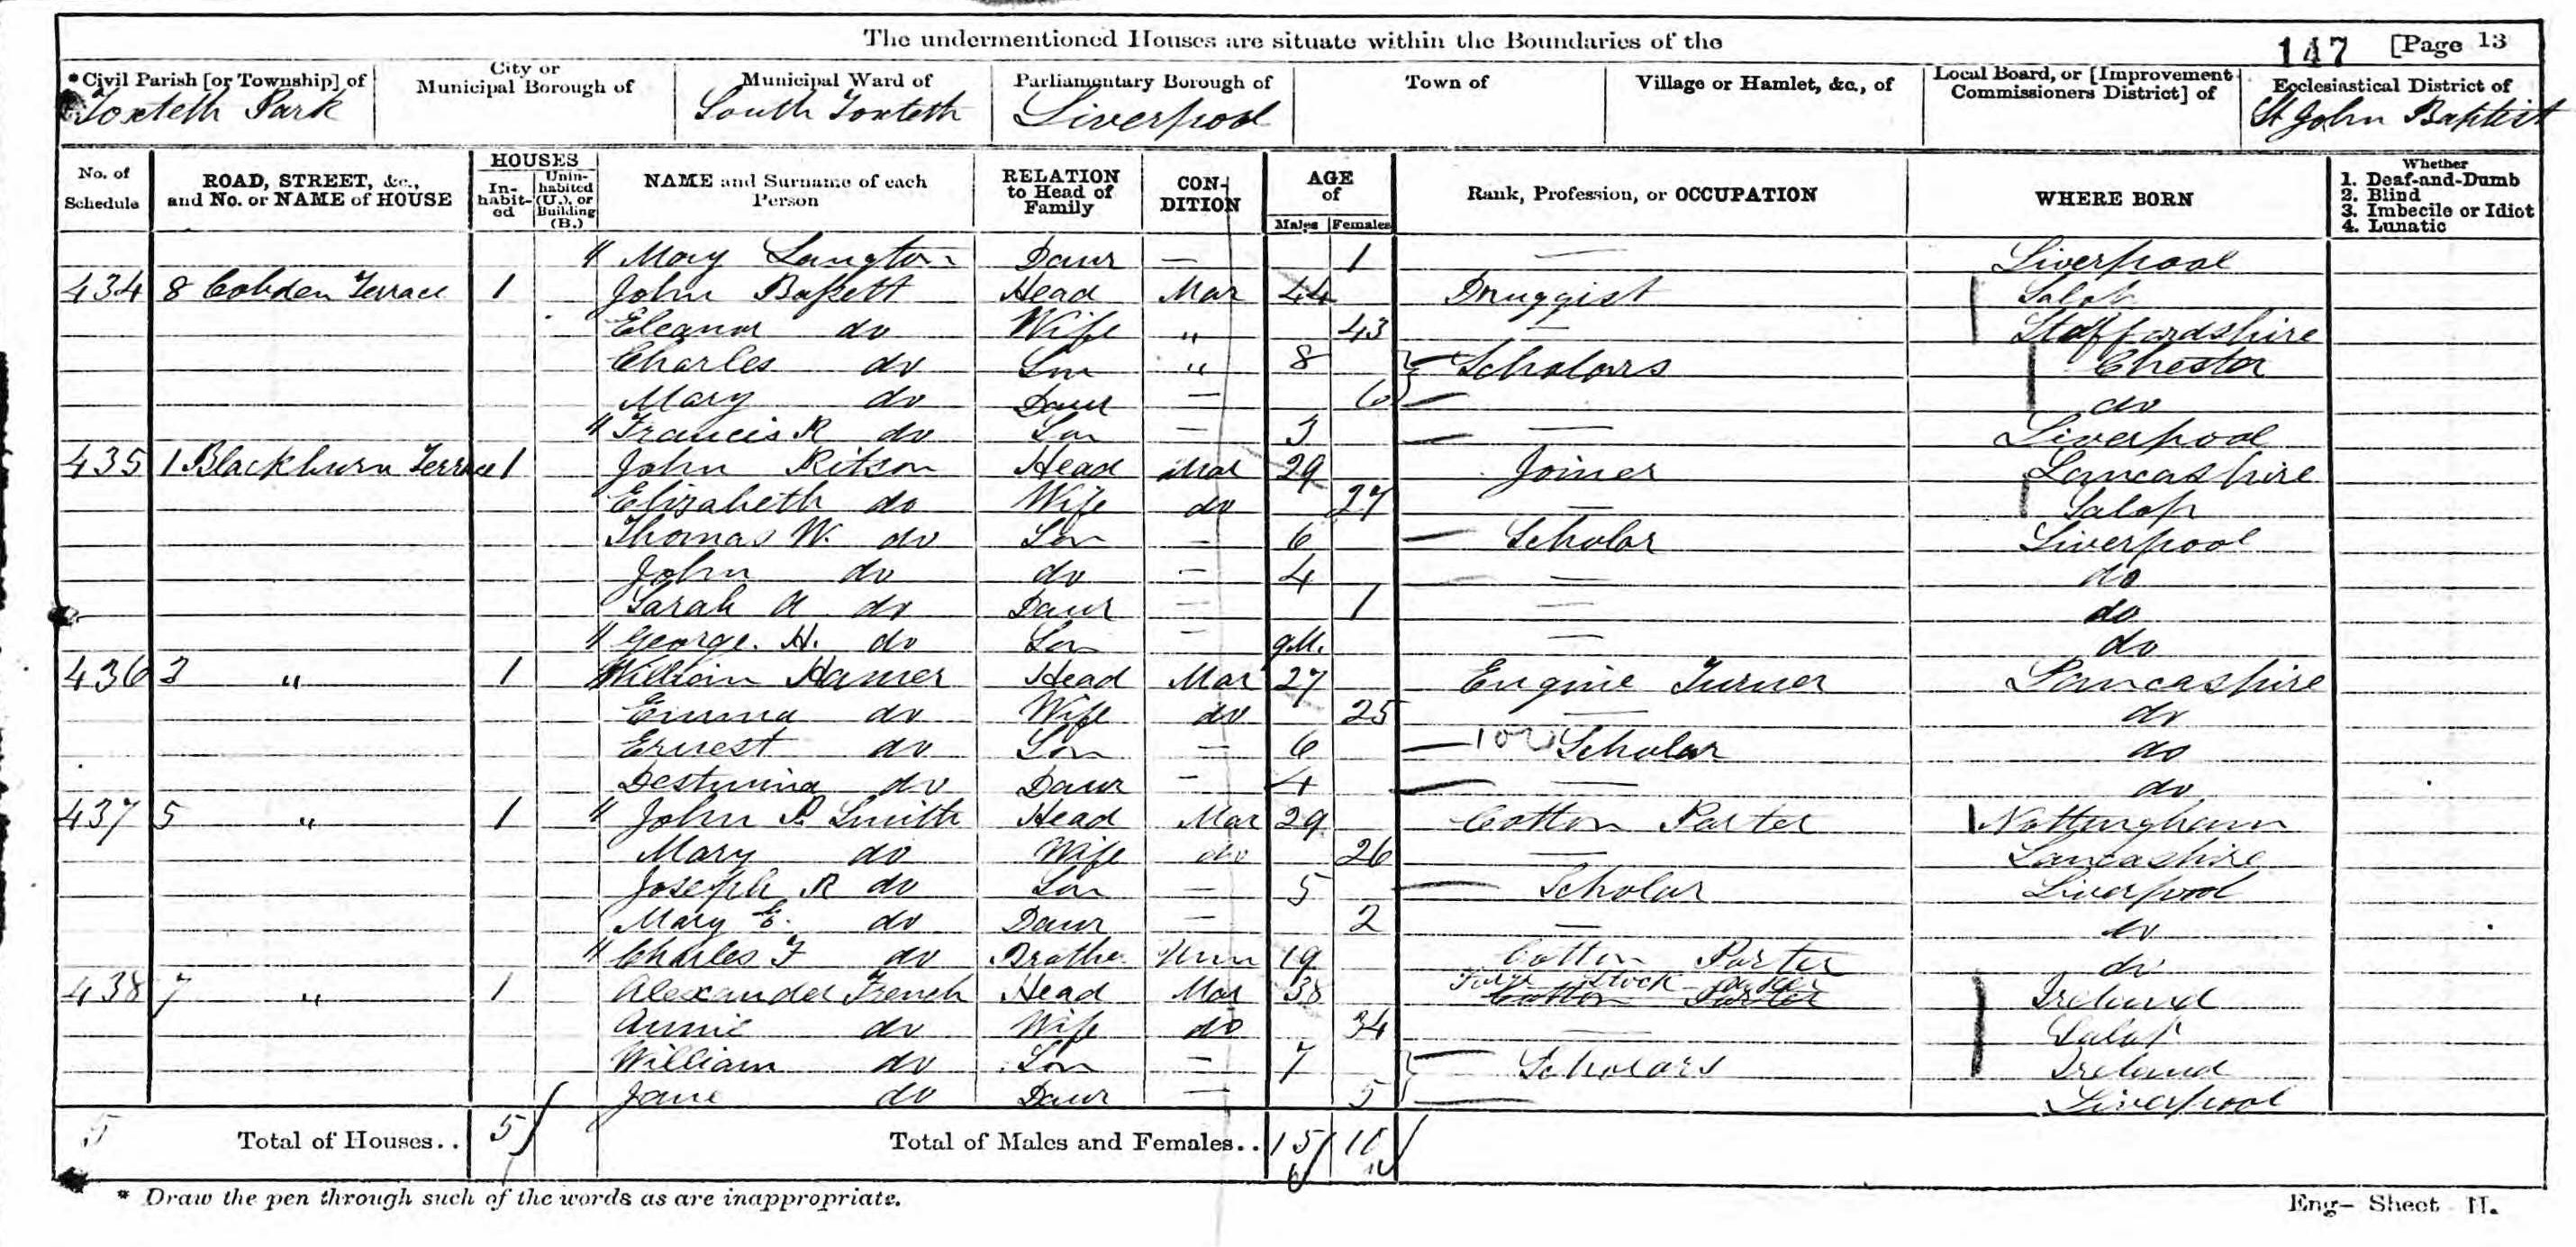 The undermentioned Houses are situate within the Boundaries of the
147 [Page 13
*Civil Parish [or Township] of
Toxteth Park
City or Municipal Borough of
Municipal Ward of
South Toxteth
Parliamentary Borough of
Liverpool
Town of
Village or Hamlet, &c., of
Local Board, or [Improvement Commissioners District] of
Ecclesiastical District of
St John Baptist
No. of Schedule
ROAD, STREET, &c., and No. or NAME of HOUSE
HOUSES
In-habit-ed
Unin-habited (U.), or Building (B.)
NAME and Surname of each Person
RELATION to Head of Family
CON-DITION
AGE of
Males Females
Rank, Profession, or OCCUPATION
WHERE BORN
Whether
1. Deaf-and-Dumb
2. Blind
3. Imbecile or Idiot
4. Lunatic
" Mary Langton Daur — 1 — Liverpool
434 8 Cobden Terrace 1 John Bassett Head Mar 44 Druggist Salop
Eleanor do Wife " 43 — Staffordshire
Charles do Son " 8 Scholars Chester
Mary do Daur — 6 — do
" Francis R do Son — 3 — Liverpool
435 1 Blackburn Terrace 1 John Ritson Head Mar 29 Joiner Lancashire
Elizabeth do Wife do 27 — Salop
Thomas W. do Son — 6 Scholar Liverpool
John do do — 4 — do
Sarah A do Daur — 1 — do
" George. H. do Son — 9M. — do
436 3 " 1 William Hamer Head Mar 27 Engine Turner Lancashire
Emma do Wife do 25 — do
Ernest do Son — 6 Scholar do
do Daur — 4 — do
437 5 " 1 " John P. Smith Head Mar 29 Cotton Porter Nottingham
Mary do Wife do 26 — Lancashire
Joseph R do Son — 5 Scholar Liverpool
Mary E. do Daur — 2 — do
" Charles F do Brother Unm 19 Cotton Porter do
438 7 " 1 Alexander French Head Mar 38 Stock Cotton Porter Ireland
Annie do Wife do 34 — Salop
William do Son — 7 Scholars Ireland
Jane do Daur — 5 — Liverpool
5 Total of Houses.. 5 Total of Males and Females.. 15 10
* Draw the pen through such of the words as are inappropriate.
Eng- Sheet H.